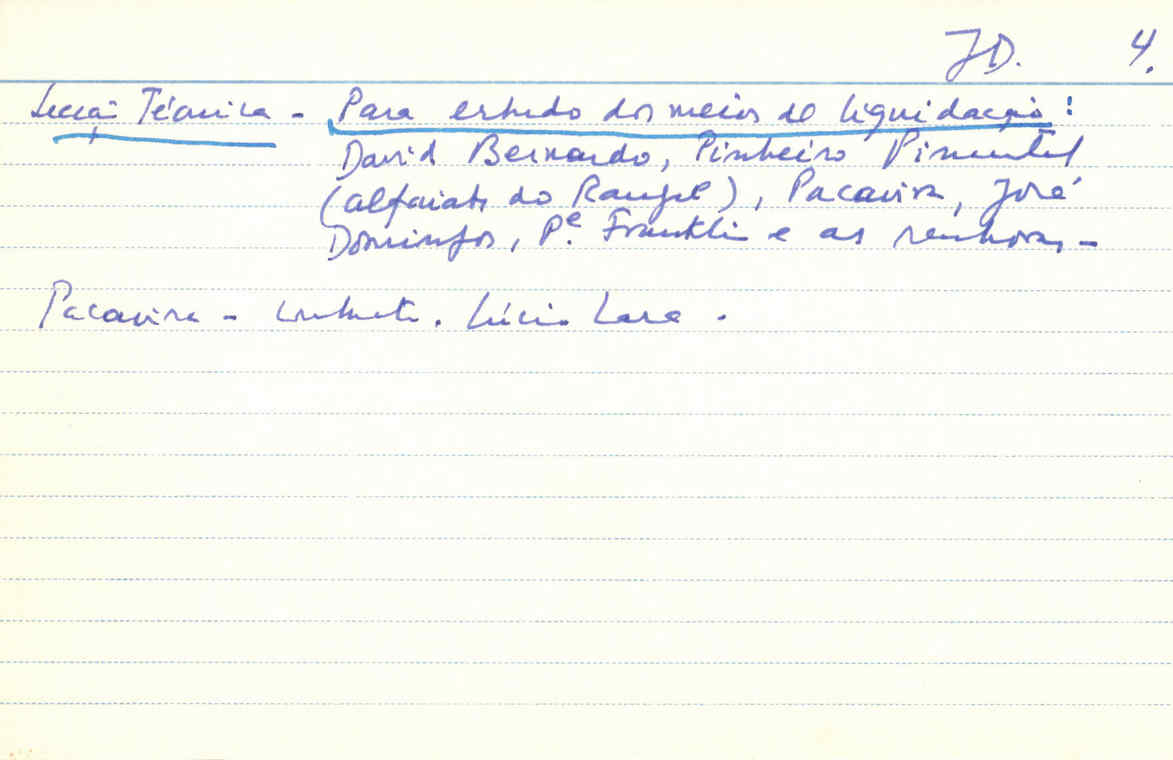 JD. 4.
Secção Técnica - Para estudo dos meios de liquidação:
David Bernardo, Pinheiro Pimentel
(alfaiate do Rangel), Pacavira, José
Domingos, Pe. Franklin e as senhoras -
Pacavira - contacto. Lúcio Lara.